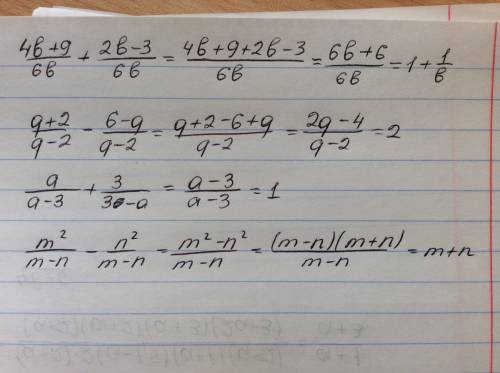 (4b+9)/6b + (2b-3)/6b = (4b+9+2b-3)/6b = (6b+6)/6b = 1 + 1/b
(q+2)/(q-2) - (6-q)/(q-2) = (q+2-6+q)/(q-2) = (2q-4)/(q-2) = 2
a/(a-3) + 3/(3-a) = (a-3)/(a-3) = 1
m²/(m-n) - n²/(m-n) = (m²-n²)/(m-n) = (m-n)(m+n)/(m-n) = m+n